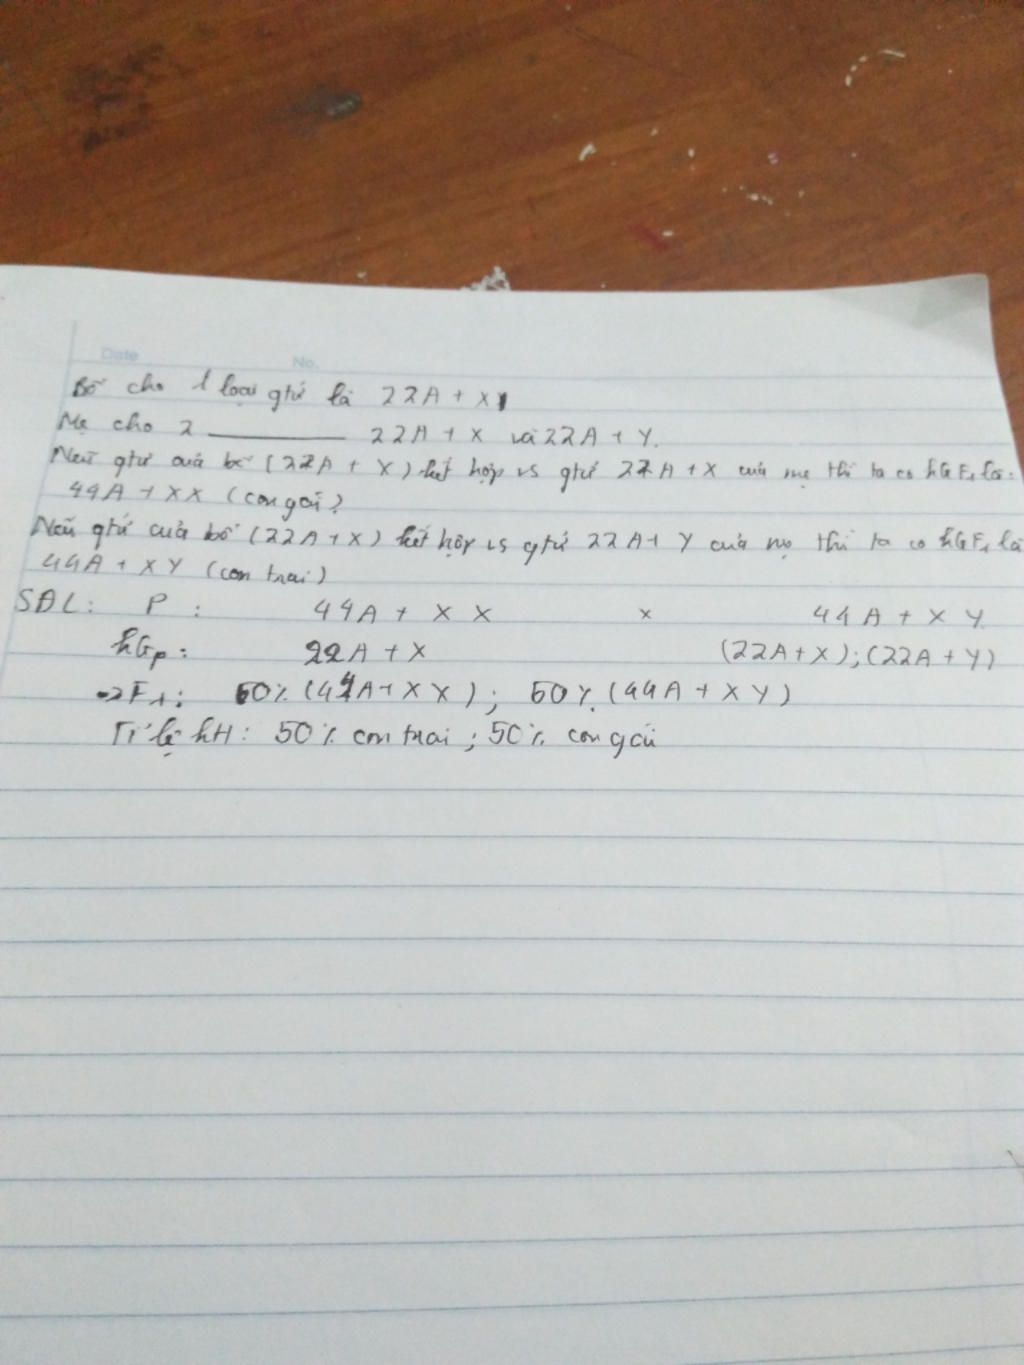 Date No.
Bố cho 1 loại gtử là 22A + X
Mẹ cho 2 ——— 22A + X và 22A + Y.
Nếu gtử của bố (22A + X) kết hợp vs gtử 22A + X của mẹ thì ta có kGF1 là:
44A + XX (con gái)
Nếu gtử của bố (22A + X) kết hợp vs gtử 22A + Y của mẹ thì ta có kGF1 là
44A + XY (con trai)
SĐL: P : 44A + XX x 44A + XY
kGp: 22A + X (22A+X);(22A+Y)
F1: 50% (44A+XX); 50% (44A+XY)
Tỉ lệ kH: 50% con trai; 50% con gái